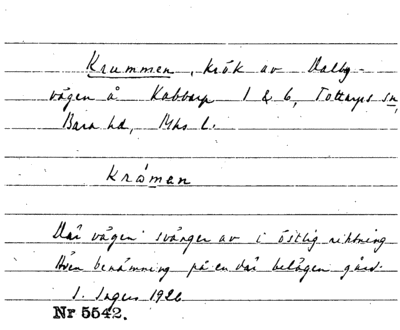 Krummen, krök av Dalby-
vägen å Kabbarp 1 & 6, Tottarps sn,
Bara hd, Mhs l.
kråmen
Där vägen svänger av i östlig riktning
Även benämning på en där belägen gård.
J. Ingers 1926
Nr 5542.